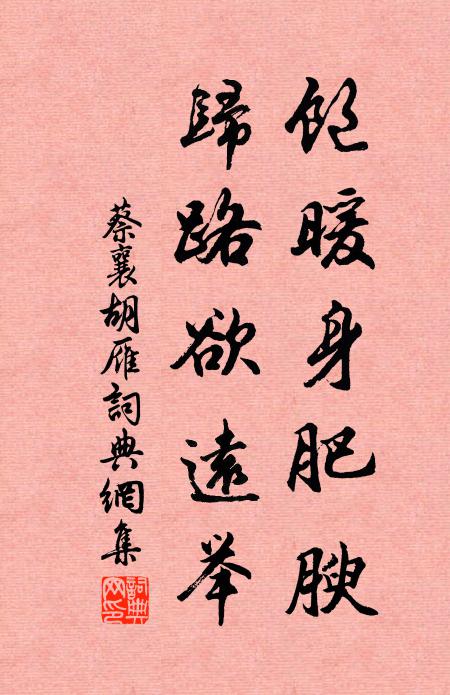 飽暖身肥腴
歸路欲遠举
蔡襄胡雁詞典網集
詞典网印